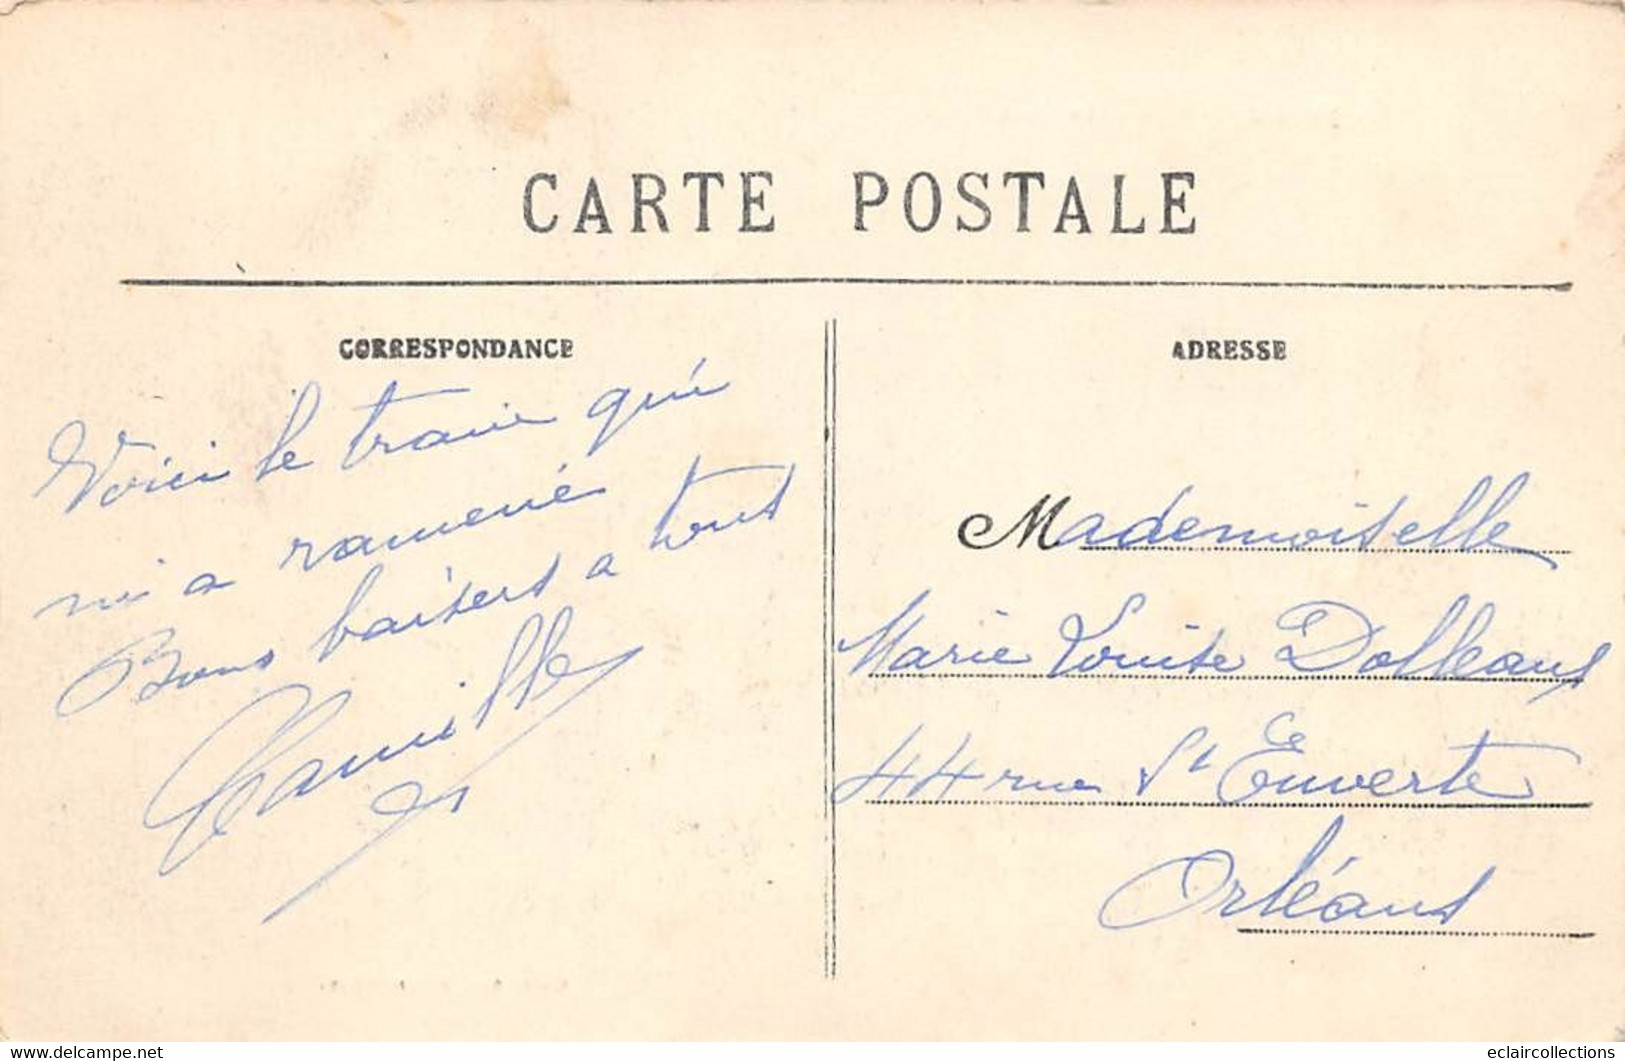 CARTE POSTALE
CORRESPONDANCE
Voici le train qui
m'a ramené
Bons baisers a tous
Camille
ADRESSE
Mademoiselle
Marie Louise Dolléans
44 rue St Euverte
Orléans
www.delcampe.net
eclaircollections